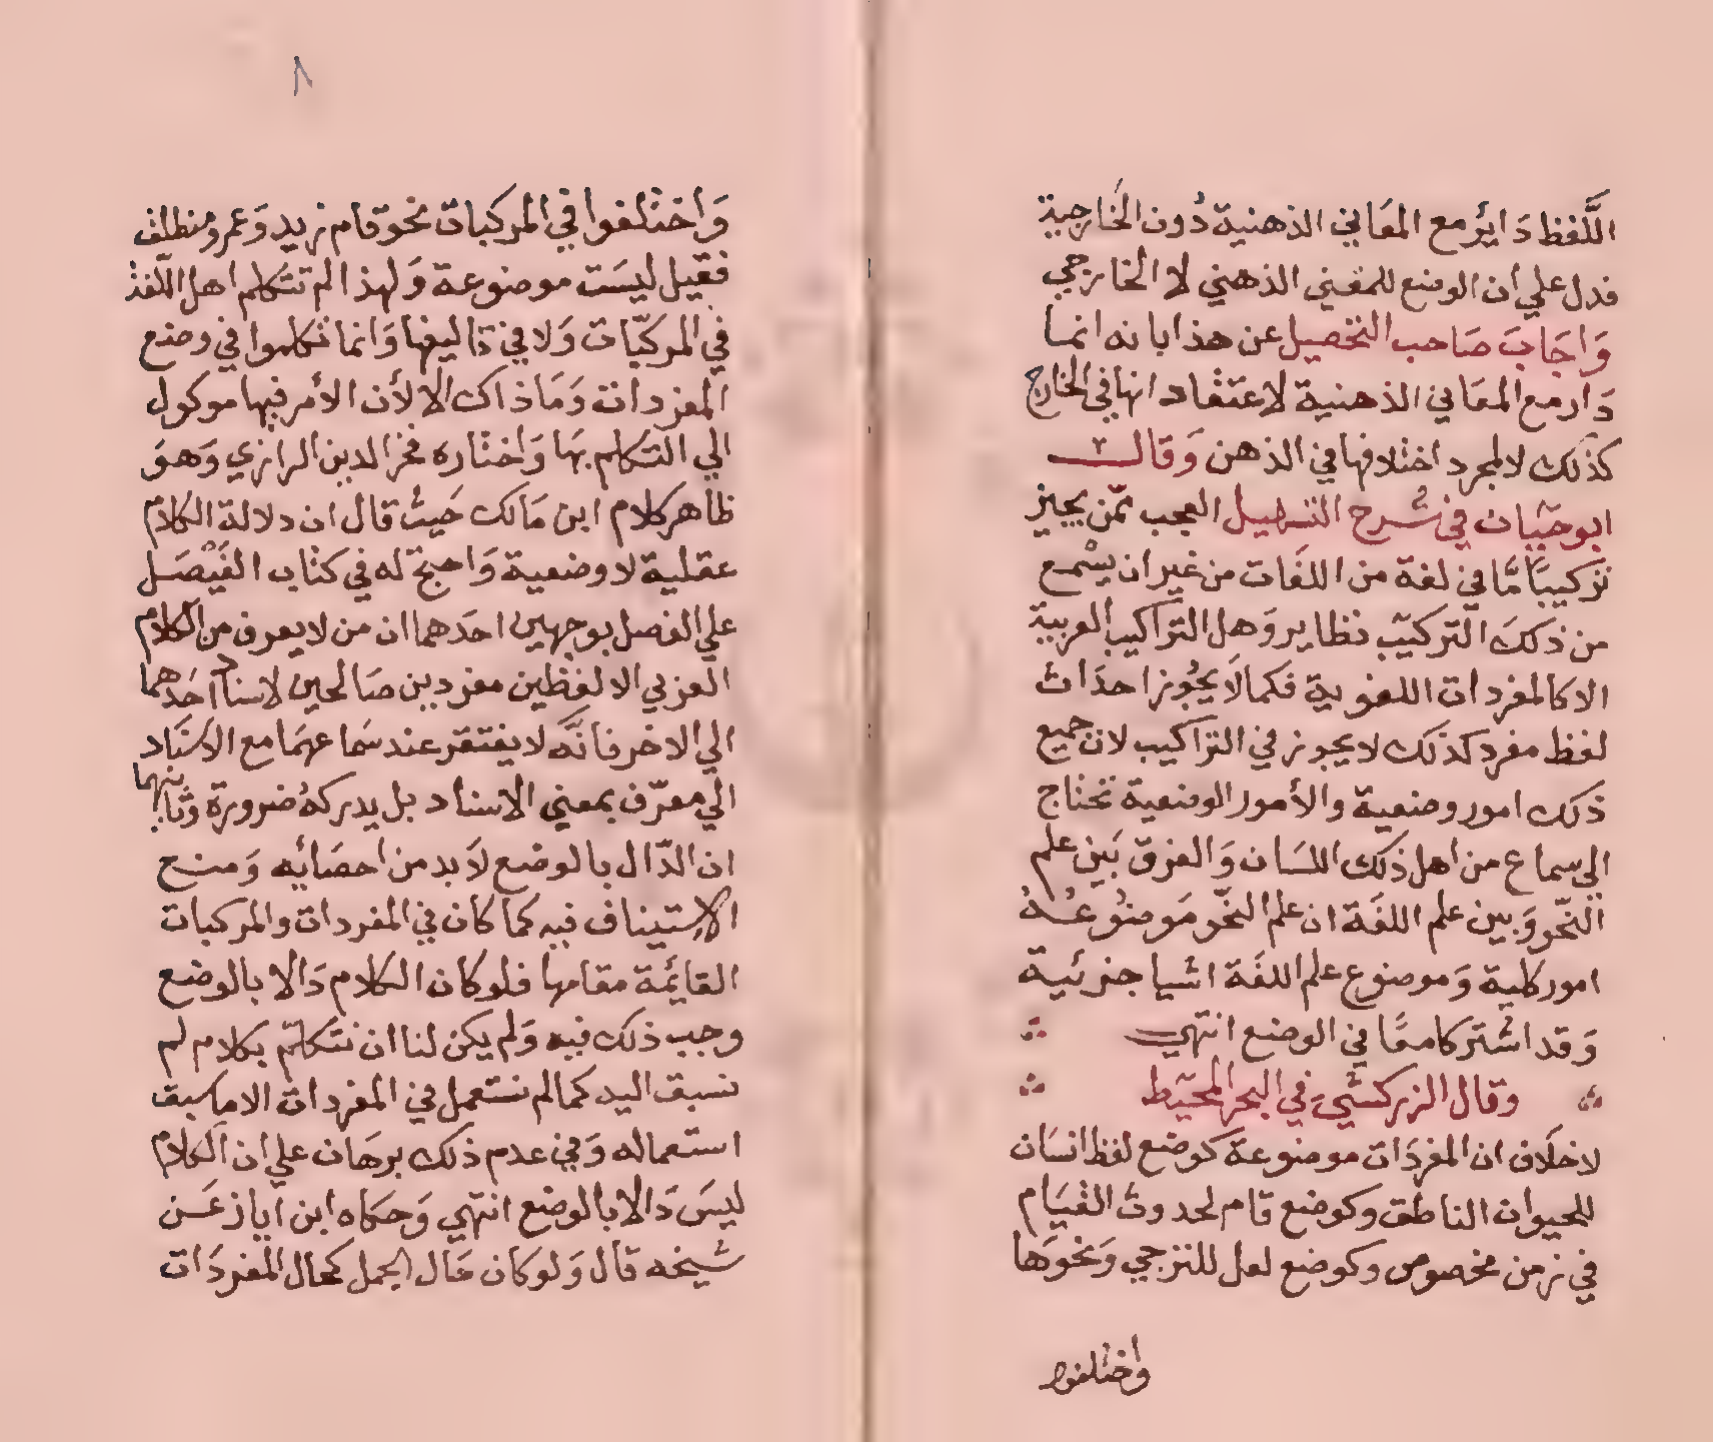 اللَّفظ دَايرُ مع المعَاني الذهنية دُون الخَارجية
فدل علي ان الوضع للمعني الذهني لا الخارجي
وَاجَابَ صَاحب التحصيل عن هذا بانه انما
دَار مع المعَاني الذهنية لاعتقاد انها في الخارج
كذلك لا لمجرد اختلافها في الذهن وَقالــ
ابو حَيَّان في شرح التسهيل العجب ممّن يجيز
تركيبًا مَّا في لغة من اللغَات من غير ان يسْمع
من ذلكَ التركيب نظاير وَهل التَّراكيب العربية
الا كالمفردات اللغوية فكما لَا يجُوز احدَاث
لفظ مفرد كذلك لا يجوز في التراكيب لان جميع
ذلك امور وضعية والأمور الوضعية تحتاج
الي سماع من اهل ذلك اللسَان وَالفرق بَين علم
النّحو وَبين علم اللغَة ان علم النحّو مَوضوُعُهُ
امور كلية وَموضوع علم اللغَة اشيا جزئية
وَقد اشتركا معًا في الوضع انتهي
وقال الزركشي في البحر المحيط
لا خلَاف ان المفردَات موضوعة كوضع لفظ انسَان
للحيوان الناطق وكوضع قام لحدوث القيَام
في زمن مخصوص وكوضع لعل للترجي وَنحوَها
واختلفوا
٨
وَاختلفوا في المركبات نحو قام زيد وَعمرو منطلق
فقيل ليسَت موضوعة وَلهذا لم تتكلم اهل اللّغة
في المركبّات وَلا في تاليفها وَانما تكلموا في وضع
المفردات وَمَا ذاك الا لأن الأمر فيها موكول
الي التكلم بهَا وَاختاره فخر الدين الرازي وَهوَ
ظاهر كلام ابن مَالك حَيث قال ان دلالة الكلام
عقلية لا وضعية وَاحتج له في كتاب الفَيْصَل
علي الفصل بوجهين احَدهما ان من لا يعرف من الكلام
العربي الا لفظين مفردين صَالحين لاسناد احَدهما
الي الاخر فانَّه لا يفتقر عند سمَاعهمَا مع الاسنَاد
الي معرّف بمعني الاسناد بل يدركهُ ضرورة وثانيهما
ان الدّال بالوضع لَابد من احصَائه وَمنع
الاستيناف فيه كما كان في المفردات والمركبات
القايمَة مقامها فلو كان الكلام دَالا بالوضع
وجب ذلك فيه وَلم يكن لنا ان نتكلم بكلام لم
نسبق اليه كما لم نستعمل في المفردات الا ما سبق
استعماله وَفي عدم ذلك برهَان علي ان الكلام
ليسَ دَالا بالوضع انتهي وَحكاه ابن اياز عَن
شيخه قال وَلو كان حَال الجمل كحال المفردَات